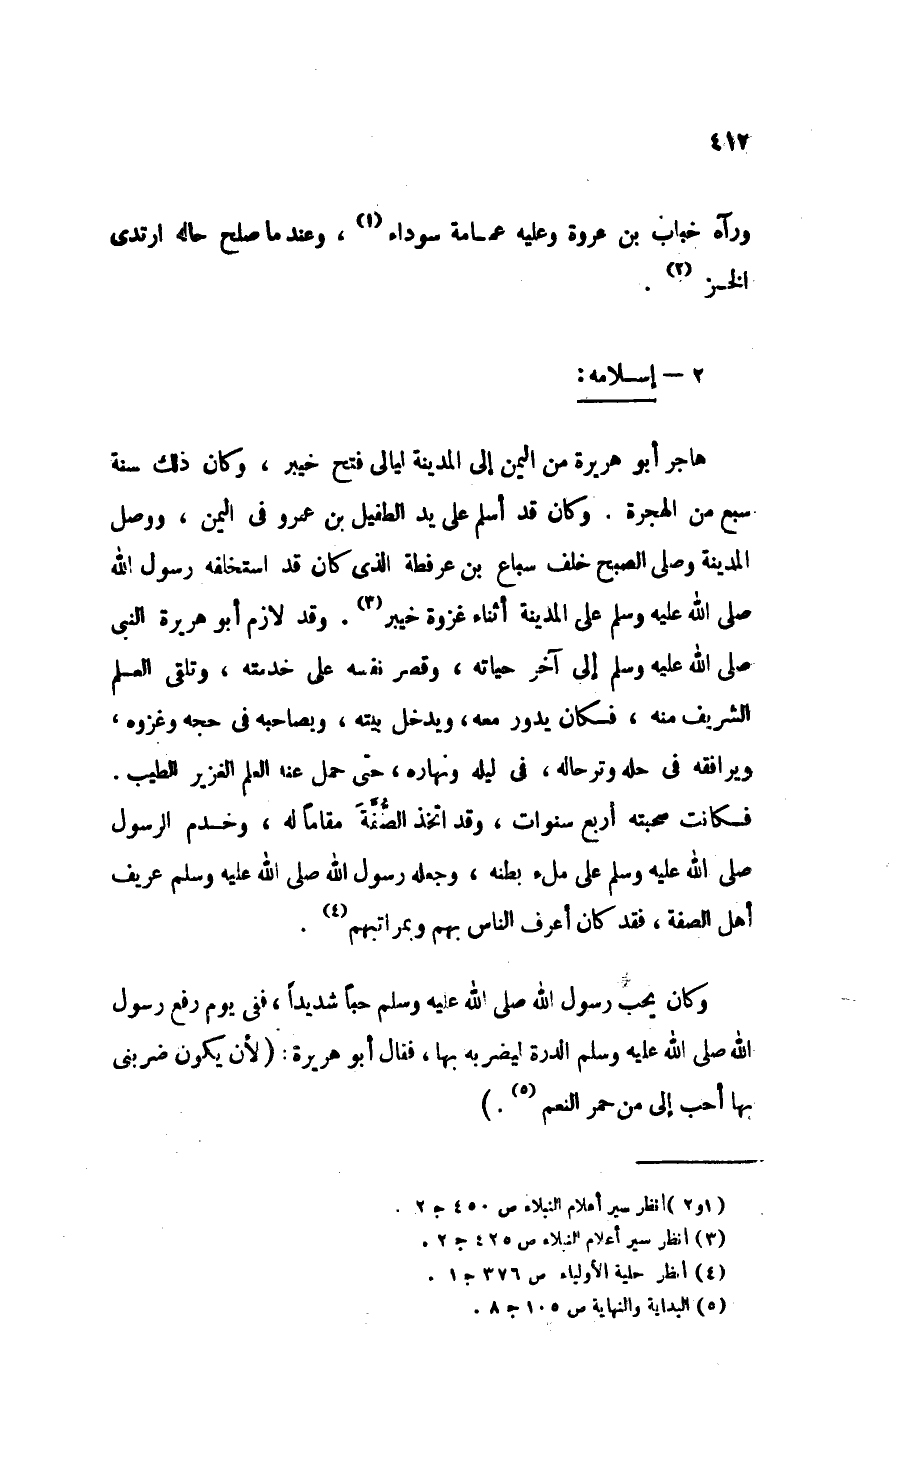 ٤١٢
ورآه خباب بن عروة وعليه عمامة سوداء (١) ، وعندما صلح حاله ارتدى
الخز (٢) .
٢ — إسلامه :
هاجر أبو هريرة من اليمن إلى المدينة ليالى فتح خيبر ، وكان ذلك سنة
سبع من الهجرة . وكان قد أسلم على يد الطفيل بن عمرو فى اليمن ، ووصل
المدينة وصلى الصبح خلف سباع بن عرفطة الذى كان قد استخلفه رسول الله
صلى الله عليه وسلم على المدينة أثناء غزوة خيبر (٣) . وقد لازم أبو هريرة النبى
صلى الله عليه وسلم إلى آخر حياته ، وقصر نفسه على خدمته ، وتلقى العلم
الشريف منه ، فكان يدور معه ، ويدخل بيته ، ويصاحبه فى حجه وغزوه ،
ويرافقه فى حله وترحاله ، فى ليله ونهاره ، حتى حمل عنه العلم الغزير الطيب .
فكانت صحبته أربع سنوات ، وقد اتخذ الصُّفَّةَ مقاماً له ، وخدم الرسول
صلى الله عليه وسلم على ملء بطنه ، وجعله رسول الله صلى الله عليه وسلم عريف
أهل الصفة ، فقد كان أعرف الناس بهم وبمراتبهم (٤) .
وكان يحب رسول الله صلى الله عليه وسلم حباً شديداً ، ففى يوم رفع رسول
الله صلى الله عليه وسلم الدرة ليضربه بها ، فقال أبو هريرة : ( لأن يكون ضربنى
بها أحب إلى من حمر النعم (٥) . )
(١و٢) انظر سير أعلام النبلاء ص ٤٥٠ ج ٢ .
(٣) انظر سير أعلام النبلاء ص ٤٢٥ ج ٢ .
(٤) أنظر حلية الأولياء ص ٣٧٦ ج ١ .
(٥) البداية والنهاية ص ١٠٥ ج ٨ .